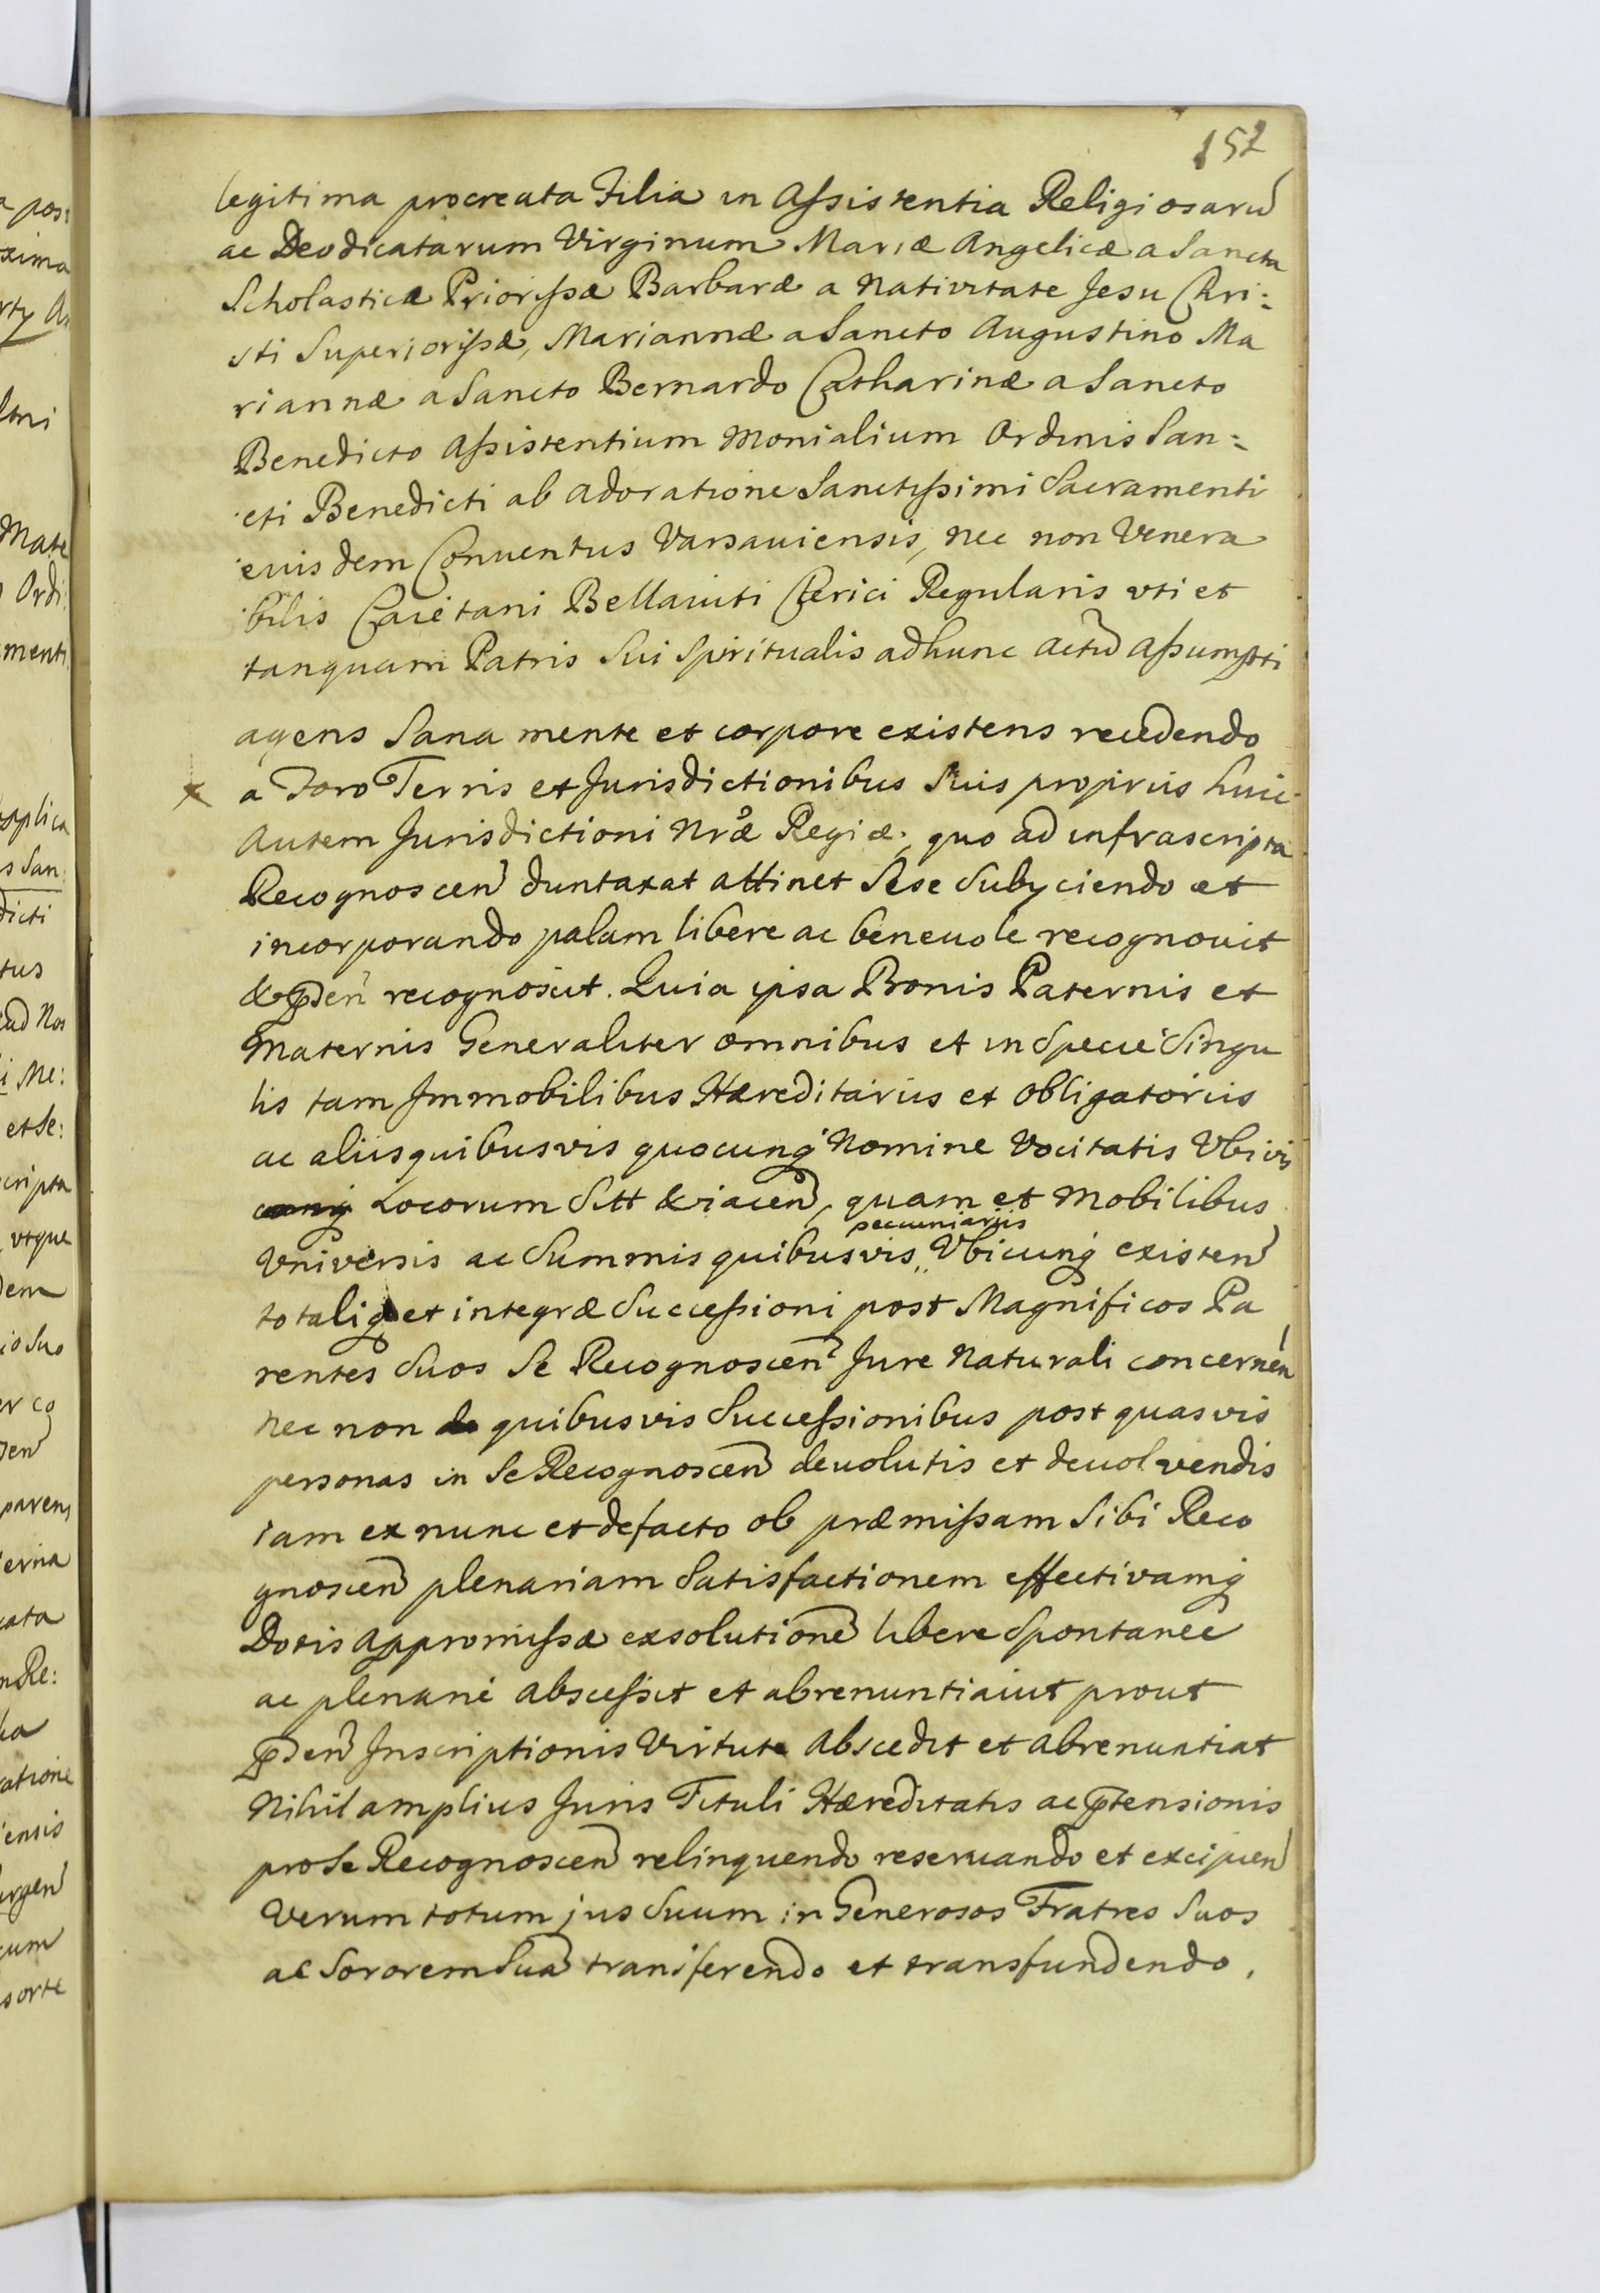 152
legitima procreata Filia in Assistentia Religiosarũ
ac Deo dicatarum Virginum Mariæ Angelicæ a Sancta
Scholastica Priorissæ Barbaræ a Nativitate Jesu Chri:
sti Superiorissæ, Mariannæ a Sancto Augustino Ma
riannæ a Sancto Bernardo Catharinæ a Sancto
Benedicto Assistentium Monialium Ordinis San:
cti Benedicti ab Adoratione Sanctissimi Sacramenti
euisdem Conuentus Varsauiensis, nec non Venera
bilis Caietani Bellauiti Clerici Regularis vti et
tanquam Patris Sui Spiritualis ad hunc actũ assumpti
agens Sana mente et corpore existens recedendo
x a Foro Terris et Jurisdictionibus Suis proprijs huic
Autem Jurisdictioni Nræ Regiæ, quo ad infrascripta
Recognoscen duntaxat attinet Sese Subyciendo et
incorporando palam libere ac beneuole recognouit
& p̄sen recognoscit. Quia ipsa Bonis Paternis et
Maternis Generaliter omnibus et in Specie Singu
lis tam Immobilibus Hæreditarijs et obligatorijs
ac alijs quibusvis quocunq Nomine Vocitatis Vbivis
Locorum Sitt & iacen, quam et Mobilibus
Vniversis ac Summis quibusvis pecuniarijs Vbicunq existen
totaliq et integræ Successioni post Magnificos Pa
rentes Suos Se Recognoscen Jure Naturali concernen
nec non quibusvis Successionibus post quasvis
personas in Se Recognoscen deuolutis et deuolvendis
iam ex nunc et de facto ob præmissam Sibi Reco
gnoscen plenariam Satisfactionem effectivamq
Dotis appromissæ exsolutionẽ libere Spontanee
ac plenarie abscessit et abrenuntiauit prout
p̄sen Inscriptionis Virtute Abscedit et abrenuntiat
Nihil amplius Juris Tituli Hæreditatis ac p̄tensionis
pro Se Recognoscen relinquendo reseruando et excipien
Verum totum jus Suum in Generosos Fratres Suos
ac Sororem Suã transferendo et transfundendo,